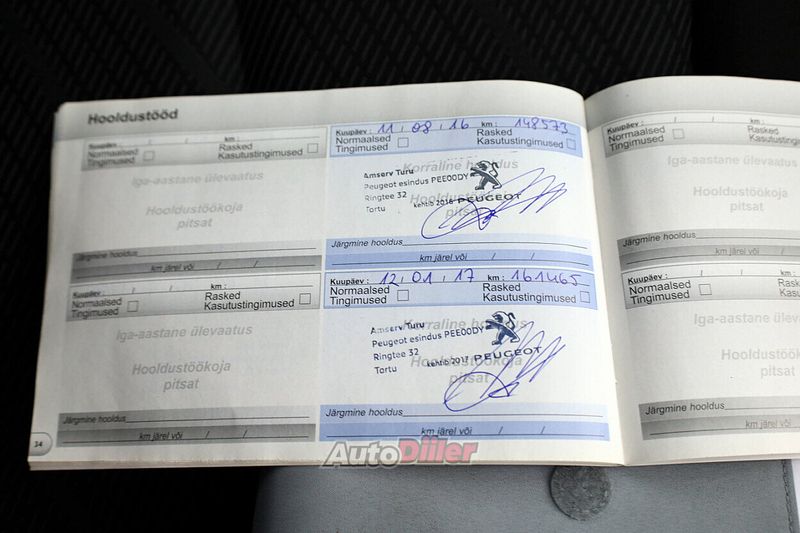 Hooldustööd
/ / km :
Normaalsed Tingimused
Rasked Kasutustingimused
Iga-aastane ülevaatus
Hooldustöökoja
pitsat
Järgmine hooldus
km järel või / /
Kuupäev : / / km :
Normaalsed Tingimused
Rasked Kasutustingimused
Iga-aastane ülevaatus
Hooldustöökoja
pitsat
Järgmine hooldus
km järel või / /
34
Kuupäev : 11 / 08 / 16 km : 148573
Normaalsed Tingimused
Rasked Kasutustingimused
Korraline hooldus
Amserv Turu
Peugeot esindus PEE00DY
Ringtee 32
Tartu kehtib 2016 PEUGEOT
pitsat
Järgmine hooldus
km järel või / /
Kuupäev : 12 / 01 / 17 km : 161465
Normaalsed Tingimused
Rasked Kasutustingimused
Korraline hooldus
Amserv Turu
Peugeot esindus PEE00DY
Ringtee 32
Tartu kehtib 2017 PEUGEOT
Hooldustöökoja
pitsat
Järgmine hooldus
km järel või / /
Kuupäev : / /
Normaalsed Tingimused
Iga-aastane ülevaatus
Hooldustöökoja
pitsat
Järgmine hooldus
km järel või
Kuupäev : / /
Normaalsed Tingimused
Iga-aastane
Hooldustöökoja
pitsat
Järgmine hooldus
km järel või
AutoDiiler